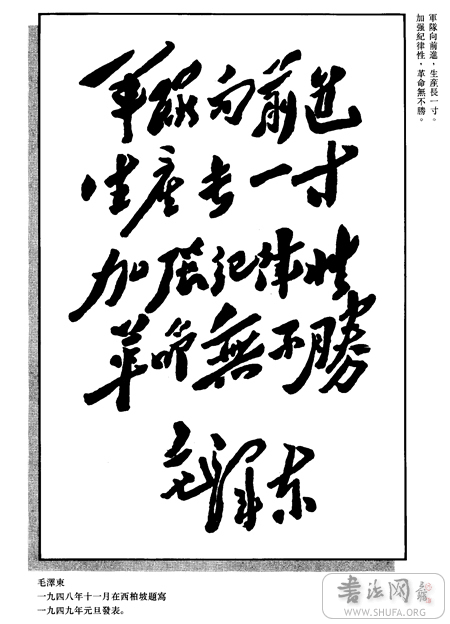 軍隊向前進
生産長一寸
加强紀律性
革命無不勝
毛澤東
軍隊向前進,生産長一寸。
加强紀律性,革命無不勝。
毛澤東
一九四八年十一月在西柏坡題寫
一九四九年元旦發表。
书法网
WWW.SHUFA.ORG